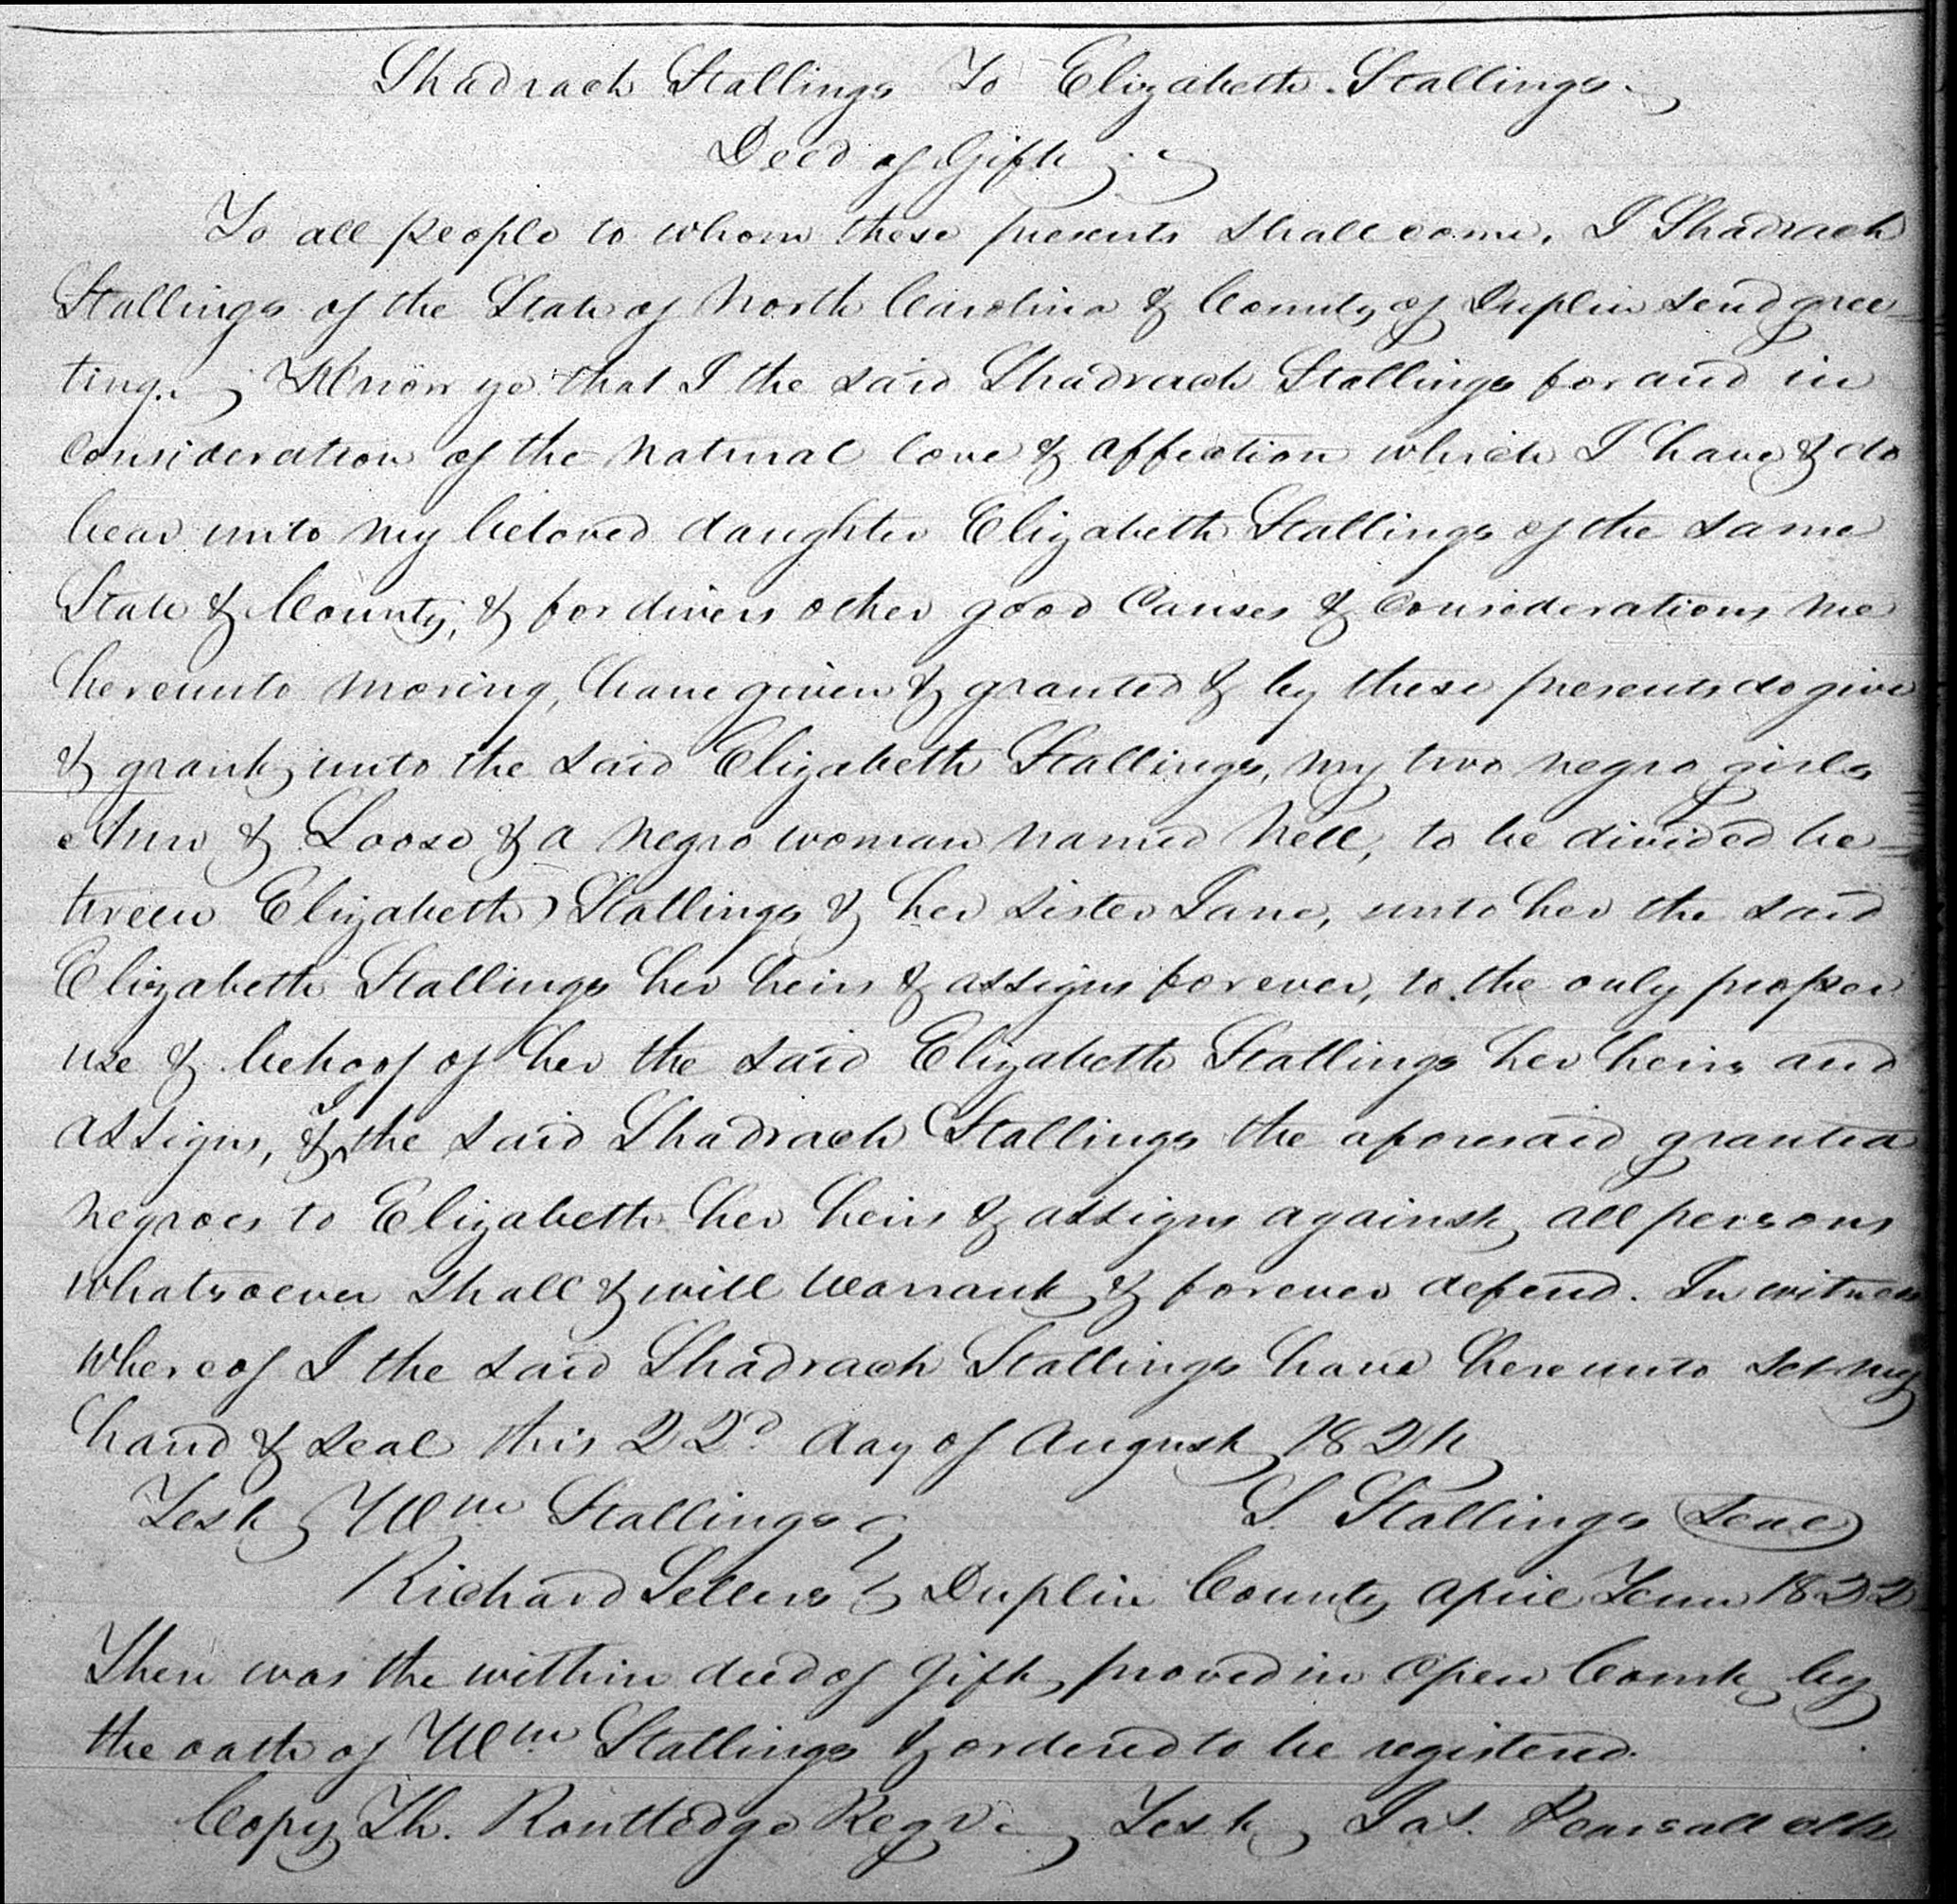 Shadrach Stallings To Elizabeth Stallings.
Deed of Gift
To all people to whom these presents shall come, I Shadrach
Stallings of the State of North Carolina & County of Duplin send gree
ting. Know ye that I the said Shadrach Stallings for and in
Consideration of the natural love & affection which I have & do
bear unto my beloved daughter Elizabeth Stallings of the same
State & County, & for divers other good Causes & Considerations me
hereunto moving, have given & granted & by these presents do give
& grant unto the said Elizabeth Stallings, my two negro girls
Ann & Loose & a negro woman named Nell, to be divided be=
tween Elizabeth Stallings & her sister Jane, unto her the said
Elizabeth Stallings her heirs & assigns forever, to the only proper
use & behoof of her the said Elizabeth Stallings her heirs and
assigns, & I the said Shadrach Stallings the aforesaid granted
negroes to Elizabeth her heirs & assigns against all persons
whatsoever shall & will Warrant & forever defend. In witness
whereof I the said Shadrach Stallings have hereunto set my
hand & seal this 22d day of August 1821
Test Wm Stallings S. Stallings Seal
Richard Sellers Duplin County April Term 1822
Then was the within deed of Gift proved in Open Court by
the oath of Wm Stallings & ordered to be registered.
Copy Th. Routledge Regr. Test Jas. Pearsall Clk